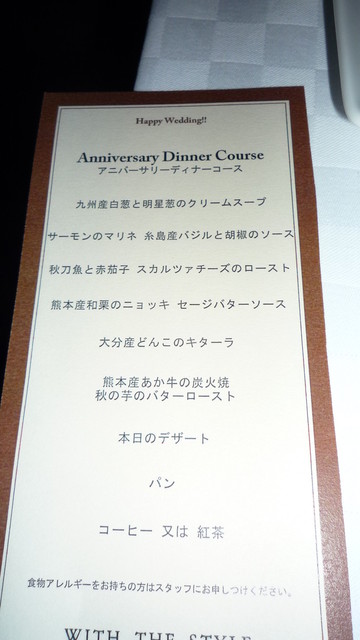 Happy Wedding!!
Anniversary Dinner Course
アニバーサリーディナーコース
九州産白葱と明星葱のクリームスープ
サーモンのマリネ 糸島産バジルと胡椒のソース
秋刀魚と赤茄子 スカルツァチーズのロースト
熊本産和栗のニョッキ セージバターソース
大分産どんこのキターラ
熊本産あか牛の炭火焼
秋の芋のバターロースト
本日のデザート
パン
コーヒー 又は 紅茶
食物アレルギーをお持ちの方はスタッフにお申しつけください。
WITH THE STYLE